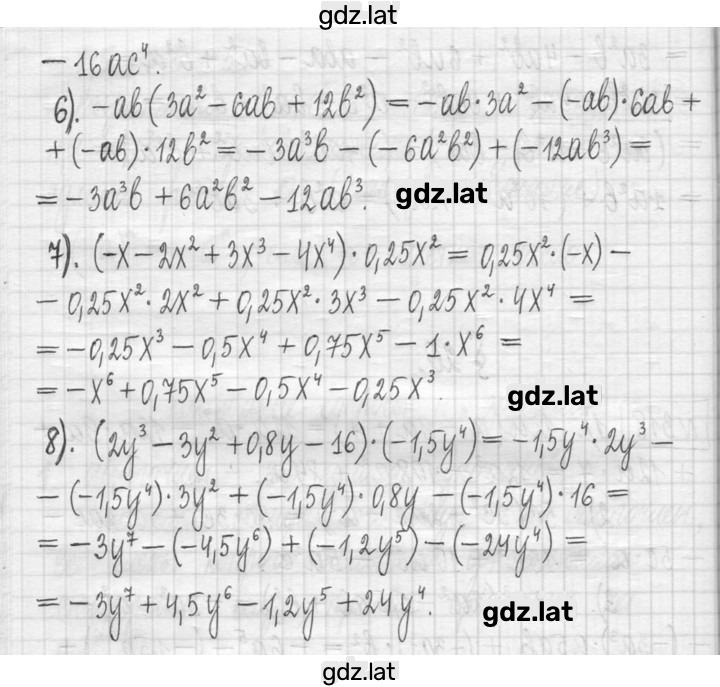 gdz.lat
- 16ac⁴.
6). -ab(3a² - 6ab + 12b²) = -ab·3a² - (-ab)·6ab +
+ (-ab)·12b² = - 3a³b - (-6a²b²) + (-12ab³) =
= - 3a³b + 6a²b² - 12ab³. gdz.lat
7). (-x - 2x² + 3x³ - 4x⁴)·0,25x² = 0,25x²·(-x) -
- 0,25x²·2x² + 0,25x²·3x³ - 0,25x²·4x⁴ =
= -0,25x³ - 0,5x⁴ + 0,75x⁵ - 1·x⁶ =
= -x⁶ + 0,75x⁵ - 0,5x⁴ - 0,25x³. gdz.lat
8). (2y³ - 3y² + 0,8y - 16)·(-1,5y⁴) = -1,5y⁴·2y³ -
- (-1,5y⁴)·3y² + (-1,5y⁴)·0,8y - (-1,5y⁴)·16 =
= - 3y⁷ - (-4,5y⁶) + (-1,2y⁵) - (-24y⁴) =
= - 3y⁷ + 4,5y⁶ - 1,2y⁵ + 24y⁴. gdz.lat
gdz.lat